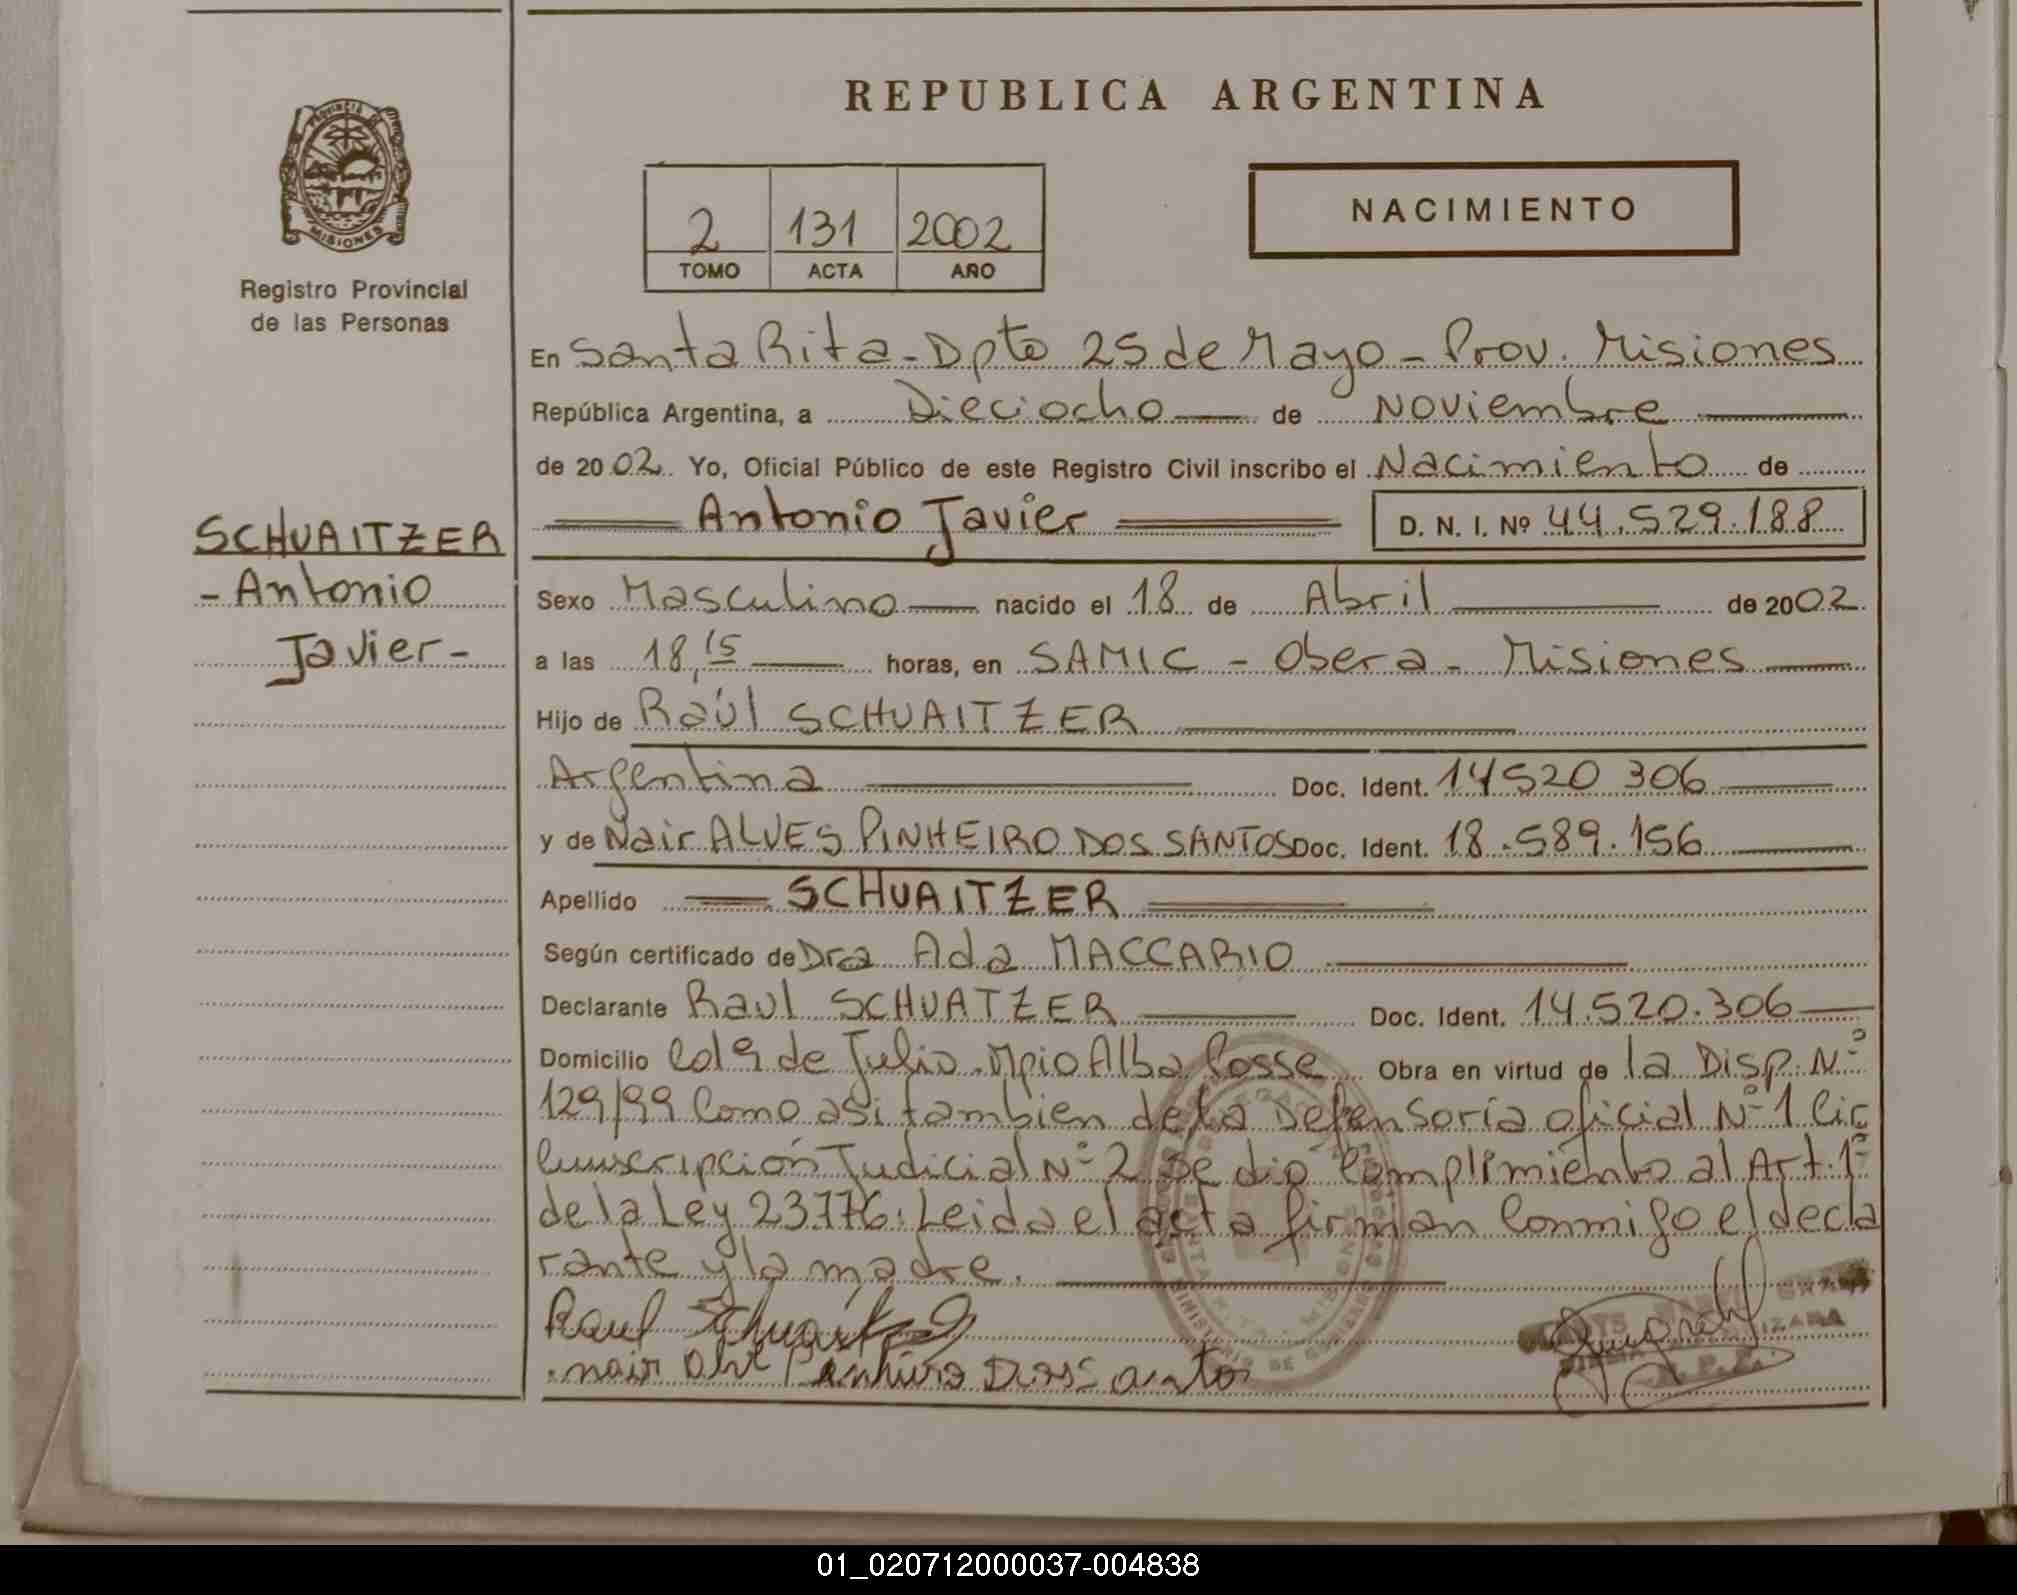 REPUBLICA ARGENTINA
PROVINCIA DE
MISIONES
Registro Provincial
de las Personas
2 131 2002
TOMO ACTA AÑO
NACIMIENTO
En Santa Rita - Dpto 25 de Mayo - Prov. Misiones
República Argentina, a Dieciocho de Noviembre
de 2002 Yo, Oficial Público de este Registro Civil inscribo el Nacimiento de
Antonio Javier D. N. I. Nº 44.529.188
SCHUAITZER
- Antonio
Javier -
Sexo Masculino nacido el 18 de Abril de 2002
a las 18,15 horas, en SAMIC - Obera - Misiones
Hijo de Raúl SCHUAITZER
Argentina Doc. Ident. 14520 306
y de Nair ALVES PINHEIRO DOS SANTOS Doc. Ident. 18.589.156
Apellido SCHUAITZER
Según certificado de Dra Ada MACCARIO
Declarante Raul SCHUATZER Doc. Ident. 14.520.306
Domicilio Col 9 de Julio. Mpio Alba Posse Obra en virtud de la Disp. Nº
129/99 Como asi tambien de la Defensoría oficial Nº 1 Cir
cunscripción Judicial Nº 2 Se dio Complimiento al Art. 1º
de la Ley 23.776. Leida el acta firman Conmigo el decla
rante y la madre.
Raul
nair Dos Santos
01_020712000037-004838